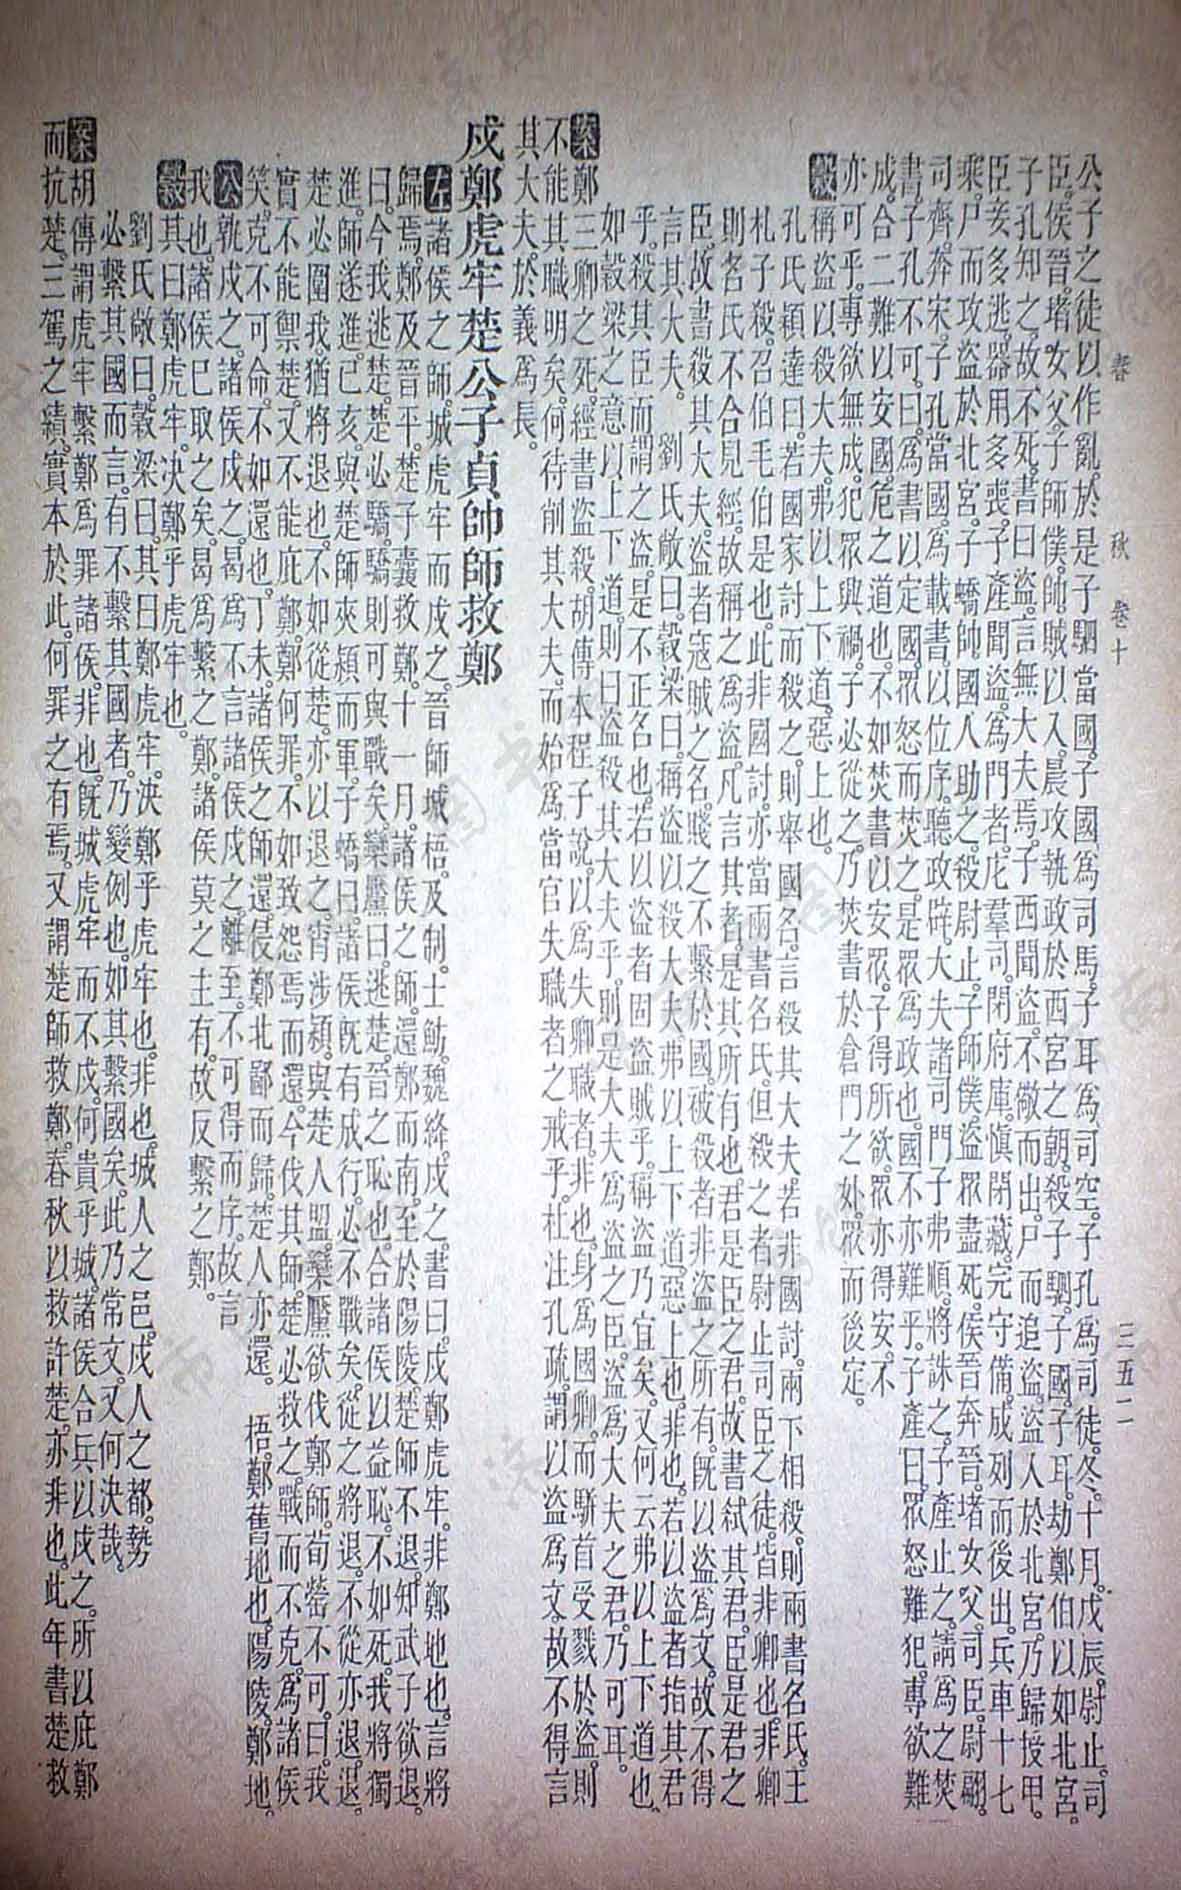 春秋 卷十 三五二
公子之徒以作亂。於是子駟當國。子國爲司馬。子耳爲司空。子孔爲司徒。冬。十月。戊辰。尉止。司
臣。侯晉。堵女父。子師僕。帥賊以入。晨攻執政於西宮之朝。殺子駟。子國。子耳。劫鄭伯以如北宮。
子孔知之。故不死。書曰盜。言無大夫焉。子西聞盜。不儆而出。尸而追盜。盜人於北宮。乃歸授甲。
臣妾多逃。器用多喪。子產聞盜。爲門者。庀羣司。閉府庫。愼閉藏。完守備。成列而後出。兵車十七
乘。尸而攻盜於北宮。子蟜帥國人助之。殺尉止。子師僕。盜眾盡死。侯晉奔晉。堵女父。司臣。尉翩。
司齊。奔宋。子孔當國。爲載書。以位序。聽政辟。大夫諸司門子弗順。將誅之。子產止之。請爲之焚
書。子孔不可。曰。爲書以定國。眾怒而焚之。是眾爲政也。國不亦難乎。子產曰。眾怒難犯。專欲難
成。合二難以安國。危之道也。不如焚書以安眾。子得所欲。眾亦得安。不
亦可乎。專欲無成。犯眾興禍。子必從之。乃焚書於倉門之外。眾而後定。
穀稱盜以殺大夫。弗以上下道。惡上也。
孔氏穎達曰。若國家討而殺之。則舉國名。言殺其大夫。若非國討。兩下相殺。則兩書名氏。王
札子殺召伯毛伯是也。此非國討。亦當兩書名氏。但殺之者尉止司臣之徒。皆非卿也。非卿
則名氏不合見經。故稱之爲盜。凡言其者。是其所有也。君是臣之君。故書弒其君。臣是君之
臣。故書殺其大夫。盜者寇賊之名。賤之不繫於國。被殺者非盜之所有。旣以盜爲文。故不得
言其大夫。 劉氏敞曰。穀梁曰。稱盜以殺大夫。弗以上下道。惡上也。非也。若以盜者指其君
乎。殺其臣而謂之盜。是不正名也。若以盜者固盜賊乎。稱盜乃宜矣。又何云弗以上下道也。
如穀梁之意。以上下道。則曰盜殺其大夫乎。則是大夫爲盜之臣。盜爲大夫之君。乃可耳。
案鄭三卿之死。經書盜殺。胡傳本程子說。以爲失卿職者。非也。身爲國卿。而駢首受戮於盜。則
不能其職明矣。何待削其大夫。而始爲當官失職者之戒乎。杜注孔疏。謂以盜爲文。故不得言
其大夫。於義爲長。
戍鄭虎牢楚公子貞帥師救鄭
左諸侯之師。城虎牢而戍之。晉師城梧。及制。士魴。魏絳。戍之。書曰。戍鄭虎牢。非鄭地也。言將
歸焉。鄭及晉平。楚子囊救鄭。十一月。諸侯之師。還鄭而南。至於陽陵。楚師不退。知武子欲退。
曰。今我逃楚。楚必驕。驕則可與戰矣。欒黶曰。逃楚。晉之恥也。合諸侯以益恥。不如死。我將獨
進。師遂進。己亥。與楚師夾潁而軍。子蟜曰。諸侯旣有成行。必不戰矣。從之將退。不從亦退。退。
楚必圍我。猶將退也。不如從楚。亦以退之。宵涉潁。與楚人盟。欒黶欲伐鄭師。荀罃不可。曰。我
實不能禦楚。又不能庇鄭。鄭何罪。不如致怨焉而還。今伐其師。楚必救之。戰而不克。爲諸侯
笑。克不可命。不如還也。丁未。諸侯之師還。侵鄭北鄙而歸。楚人亦還。 梧。鄭舊地也。陽陵。鄭地。
公孰戍之。諸侯戍之。曷爲不言諸侯戍之。離至不可得而序。故言
我也。諸侯已取之矣。曷爲繫之鄭。諸侯莫之主有。故反繫之鄭。
穀其曰鄭虎牢。決鄭乎虎牢也。
劉氏敞曰。穀梁曰。其曰鄭虎牢。決鄭乎虎牢也。非也。城人之邑。戍人之都。勢
必繫其國而言。有不繫其國者。乃變例也。如其繫國矣。此乃常文。又何決哉。
案胡傳謂虎牢繫鄭。爲罪諸侯。非也。旣城虎牢而不戍。何貴乎城。諸侯合兵以戍之。所以庇鄭
而抗楚。三駕之績。實本於此。何罪之有焉。又謂楚師救鄭。春秋以救許楚。亦非也。此年書楚救